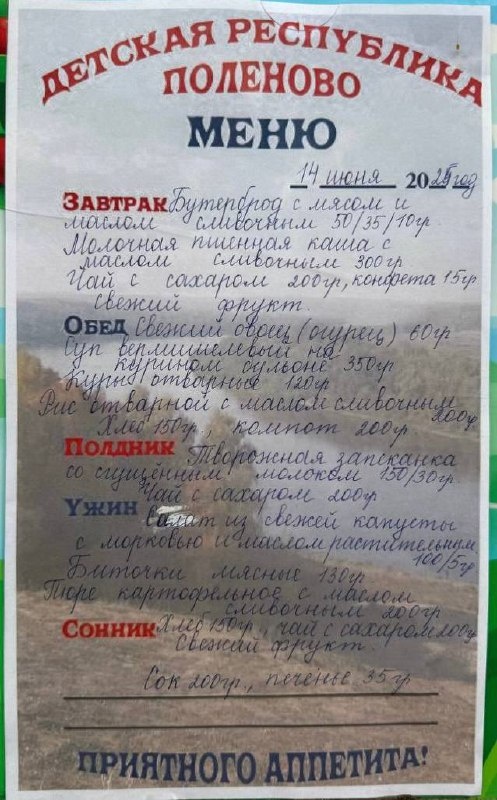 ДЕТСКАЯ РЕСПУБЛИКА
ПОЛЕНОВО
МЕНЮ
14 июня 2025 год
ЗАВТРАК Бутерброд с мясом и
маслом сливочным 50/35/10гр
Молочная пшенная каша с
маслом сливочным 300гр
Чай с сахаром 200гр, конфета 15гр
свежий фрукт.
ОБЕД Свежий овощ (огурец) 60гр
Суп вермишелевый на
курином бульоне 350гр
Куры отварные 120гр
Рис отварной с маслом сливочным
200гр
Хлеб 150гр, компот 200гр
ПОЛДНИК Творожная запеканка
со сгущённым молоком 150/30гр
Чай с сахаром 200гр
УЖИН Салат из свежей капусты
с морковью и маслом растительным
100/5гр
Биточки мясные 130гр
Пюре картофельное с маслом
сливочным 200гр
СОННИК Хлеб 150гр, чай с сахаром 200гр
Свежий фрукт.
Сок 200гр., печенье 35гр
ПРИЯТНОГО АППЕТИТА!